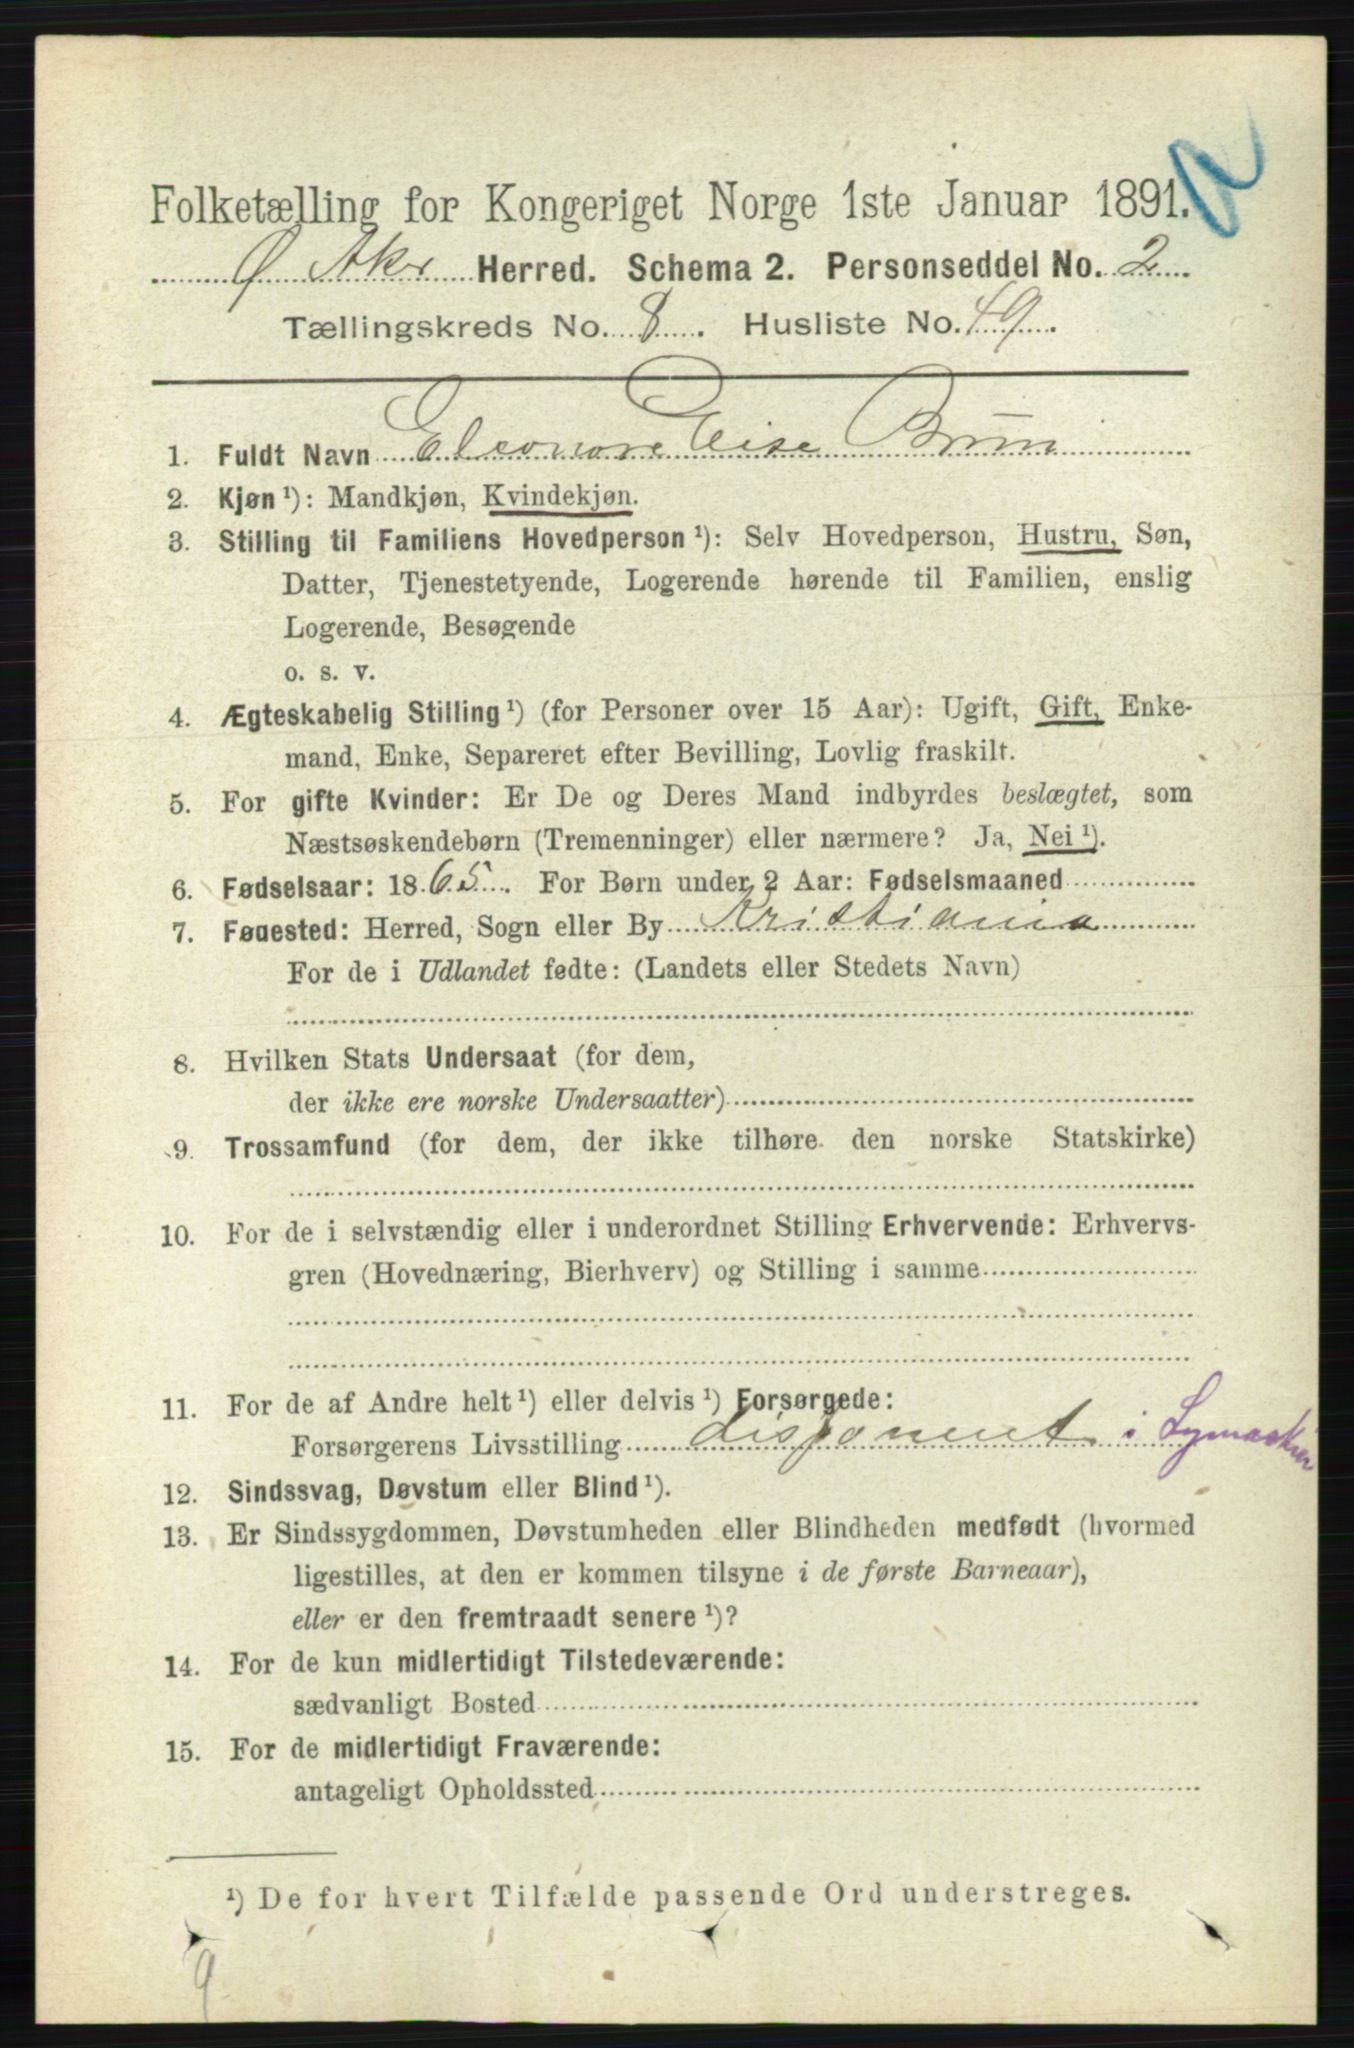 Folketælling for Kongeriget Norge 1ste Januar 1891.
Ø Aker Herred. Schema 2. Personseddel No. 2
Tællingskreds No. 8. Husliste No. 49.
1. Fuldt Navn Eleonore Elise Brun
2. Kjøn ¹): Mandkjøn, Kvindekjøn.
3. Stilling til Familiens Hovedperson ¹): Selv Hovedperson, Hustru, Søn,
Datter, Tjenestetyende, Logerende hørende til Familien, enslig
Logerende, Besøgende
o. s. v.
4. Ægteskabelig Stilling ¹) (for Personer over 15 Aar): Ugift, Gift, Enke-
mand, Enke, Separeret efter Bevilling, Lovlig fraskilt.
5. For gifte Kvinder: Er De og Deres Mand indbyrdes beslægtet, som
Næstsøskendebørn (Tremenninger) eller nærmere? Ja, Nei ¹).
6. Fødselsaar: 1865. For Børn under 2 Aar: Fødselsmaaned
7. Fødested: Herred, Sogn eller By Kristiania
For de i Udlandet fødte: (Landets eller Stedets Navn)
8. Hvilken Stats Undersaat (for dem,
der ikke ere norske Undersaatter)
9. Trossamfund (for dem, der ikke tilhøre den norske Statskirke)
10. For de i selvstændig eller i underordnet Stilling Erhvervende: Erhvervs-
gren (Hovednæring, Bierhverv) og Stilling i samme
11. For de af Andre helt ¹) eller delvis ¹) Forsørgede:
Forsørgerens Livsstilling disponent i Symaskin
12. Sindssvag, Døvstum eller Blind ¹).
13. Er Sindssygdommen, Døvstumheden eller Blindheden medfødt (hvormed
ligestilles, at den er kommen tilsyne i de første Barneaar),
eller er den fremtraadt senere ¹)?
14. For de kun midlertidigt Tilstedeværende:
sædvanligt Bosted
15. For de midlertidigt Fraværende:
antageligt Opholdssted
¹) De for hvert Tilfælde passende Ord understreges.
9